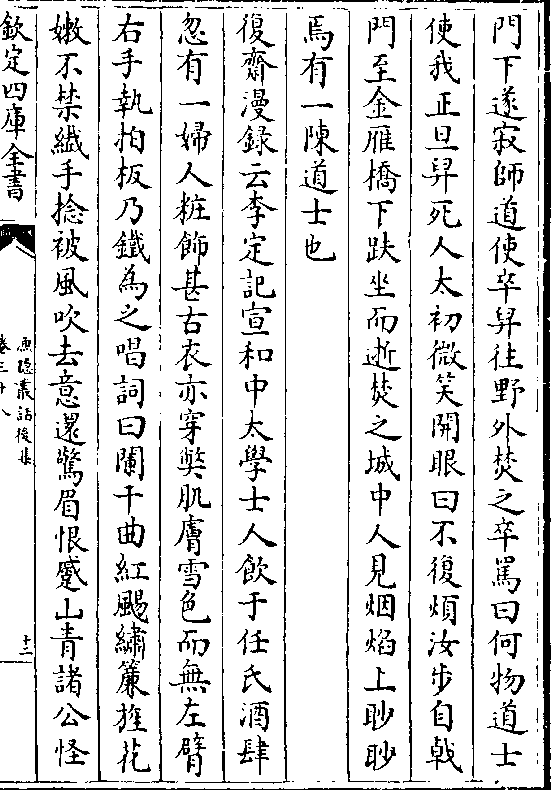 門下遂寂師道使卒舁往野外焚之卒罵曰何物道士
使我正旦舁死人太初微笑開眼曰不復煩汝步自戟
門至金雁橋下趺坐而逝焚之城中人見烟焰上眇眇
焉有一陳道士也
復齋漫録云李定記宣和中太學士人飲于任氏酒肆
忽有一婦人粧飾甚古衣亦穿弊肌膚雪色而無左臂
右手執拍板乃鐵為之唱詞曰闌干曲紅颺繡簾旌花
嫩不禁纎手捻被風吹去意還驚眉恨蹙山青諸公怪
欽定四庫全書
漁隱叢話後集
卷三十八
十二